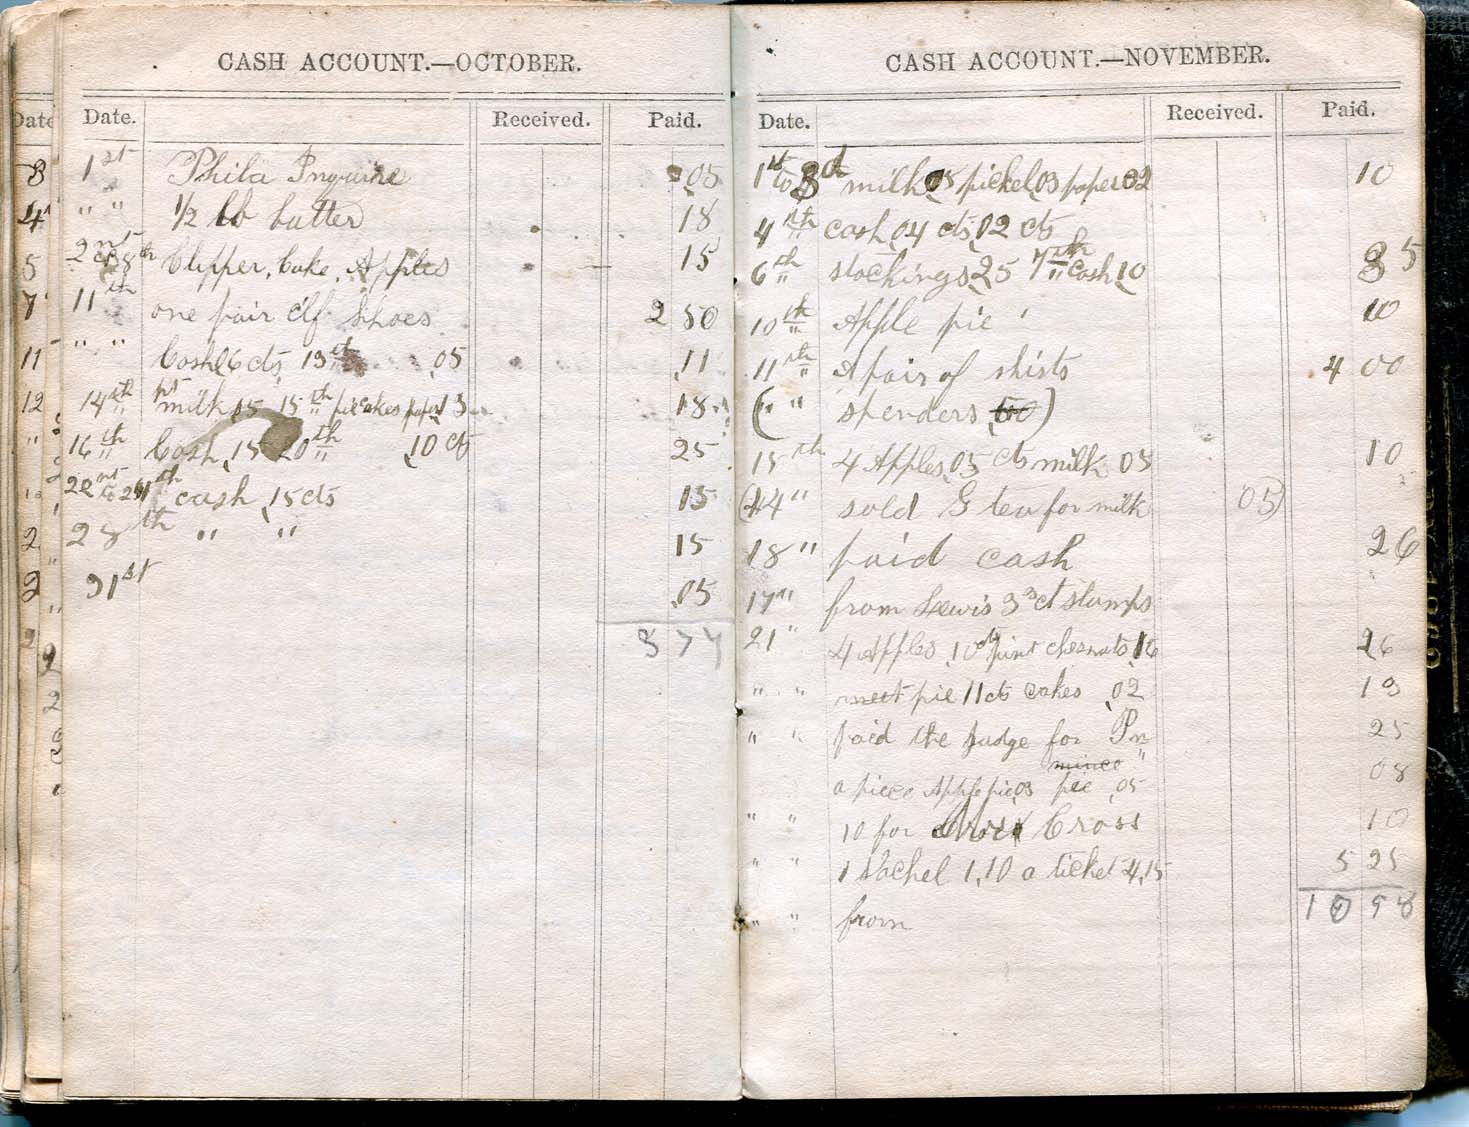 CASH ACCOUNT.—OCTOBER.
Date. Received. Paid.
1st Phila Inquire 05
" " 1/2 lb butter 18
2nd 8th Clipper, Cake, Apples 15
11th one pair Shoes 2 50
" " Cash 6 cts 13th 05 11
14th milk 05 15th pie cakes paper 13 18
16th Cash 15 20th 10 cts 25
22nd to 24th cash 15 cts 15
28th " " 15
31st 05
3 74
CASH ACCOUNT.—NOVEMBER.
Date. Received. Paid.
1st to 3d milk 05 pickel 03 paper 02 10
4th cash 04 cts 02 cts
6th stockings 25 7th Cash 10 35
10th Apple pie 10
11th A pair of shirts 4 00
( " " spenders )
15th 4 Apples 05 cts milk 05 10
(14 " sold G tea for milk 05)
18 " paid cash 26
17 " from Lewis 3 3ct stamps
21 " 4 Apples 10 cts pint chesnuts 16 26
" " meet pie 11 cts cakes 02 13
" " paid the judge for Pn 25
mince "
a piece Apple pie 03 pie 05 08
" " 10 for Cross 10
" " 1 Sachel 1,10 a ticket 4,15 5 25
" " from 10 98
Date
8
4
5
7
11
12
"
12
2
2
2